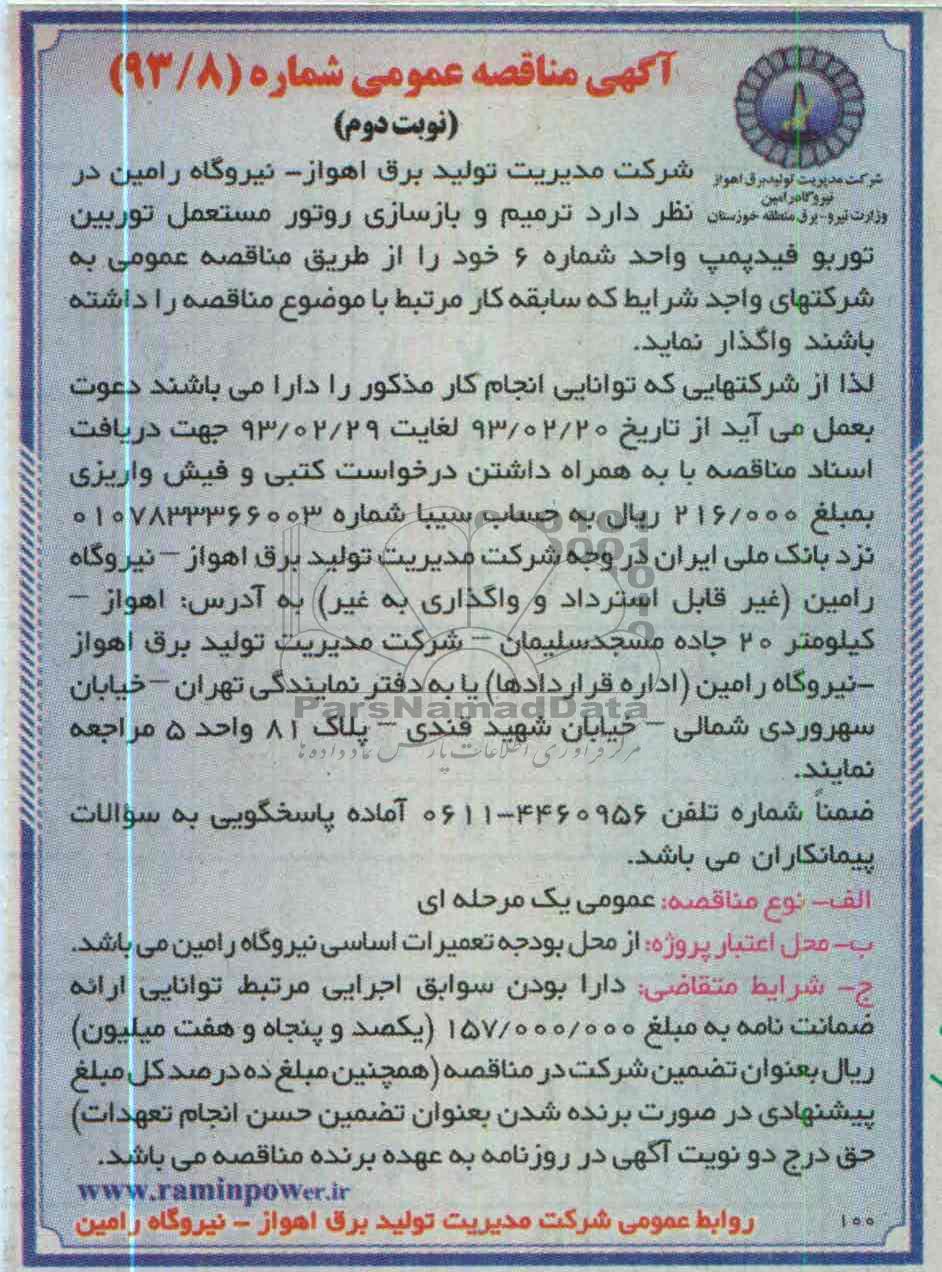 آگهی مناقصه عمومی شماره (۹۳/۸)
(نوبت دوم)
شرکت مدیریت تولیدبرق اهواز
نیروگاه رامین
وزارت نیرو-برق منطقه خوزستان
شرکت مدیریت تولید برق اهواز- نیروگاه رامین در
نظر دارد ترمیم و بازسازی روتور مستعمل توربین
توربو فیدپمپ واحد شماره ۶ خود را از طریق مناقصه عمومی به
شرکتهای واجد شرایط که سابقه کار مرتبط با موضوع مناقصه را داشته
باشند واگذار نماید.
لذا از شرکتهایی که توانایی انجام کار مذکور را دارا می باشند دعوت
بعمل می آید از تاریخ ۹۳/۰۲/۲۰ لغایت ۹۳/۰۲/۲۹ جهت دریافت
اسناد مناقصه با به همراه داشتن درخواست کتبی و فیش واریزی
بمبلغ ۲۱۶/۰۰۰ ریال به حساب سیبا شماره ۰۱۰۷۸۳۳۳۶۶۰۰۳
نزد بانک ملی ایران در وجه شرکت مدیریت تولید برق اهواز – نیروگاه
رامین (غیر قابل استرداد و واگذاری به غیر) به آدرس: اهواز –
کیلومتر ۲۰ جاده مسجدسلیمان – شرکت مدیریت تولید برق اهواز
-نیروگاه رامین (اداره قراردادها) یا به دفتر نمایندگی تهران –خیابان
سهروردی شمالی – خیابان شهید قندی – پلاک ۸۱ واحد ۵ مراجعه
نمایند.
ParsNamadData
مرکز فرآوری اطلاعات پارس نماد داده ها
ضمناً شماره تلفن ۴۴۶۰۹۵۶-۰۶۱۱ آماده پاسخگویی به سؤالات
پیمانکاران می باشد.
الف- نوع مناقصه: عمومی یک مرحله ای
ب- محل اعتبار پروژه: از محل بودجه تعمیرات اساسی نیروگاه رامین می باشد.
ج- شرایط متقاضی: دارا بودن سوابق اجرایی مرتبط، توانایی ارائه
ضمانت نامه به مبلغ ۱۵۷/۰۰۰/۰۰۰ (یکصد و پنجاه و هفت میلیون)
ریال بعنوان تضمین شرکت در مناقصه (همچنین مبلغ ده درصد کل مبلغ
پیشنهادی در صورت برنده شدن بعنوان تضمین حسن انجام تعهدات)
حق درج دو نوبت آگهی در روزنامه به عهده برنده مناقصه می باشد.
www.raminpower.ir
۱۰۰ روابط عمومی شرکت مدیریت تولید برق اهواز - نیروگاه رامین